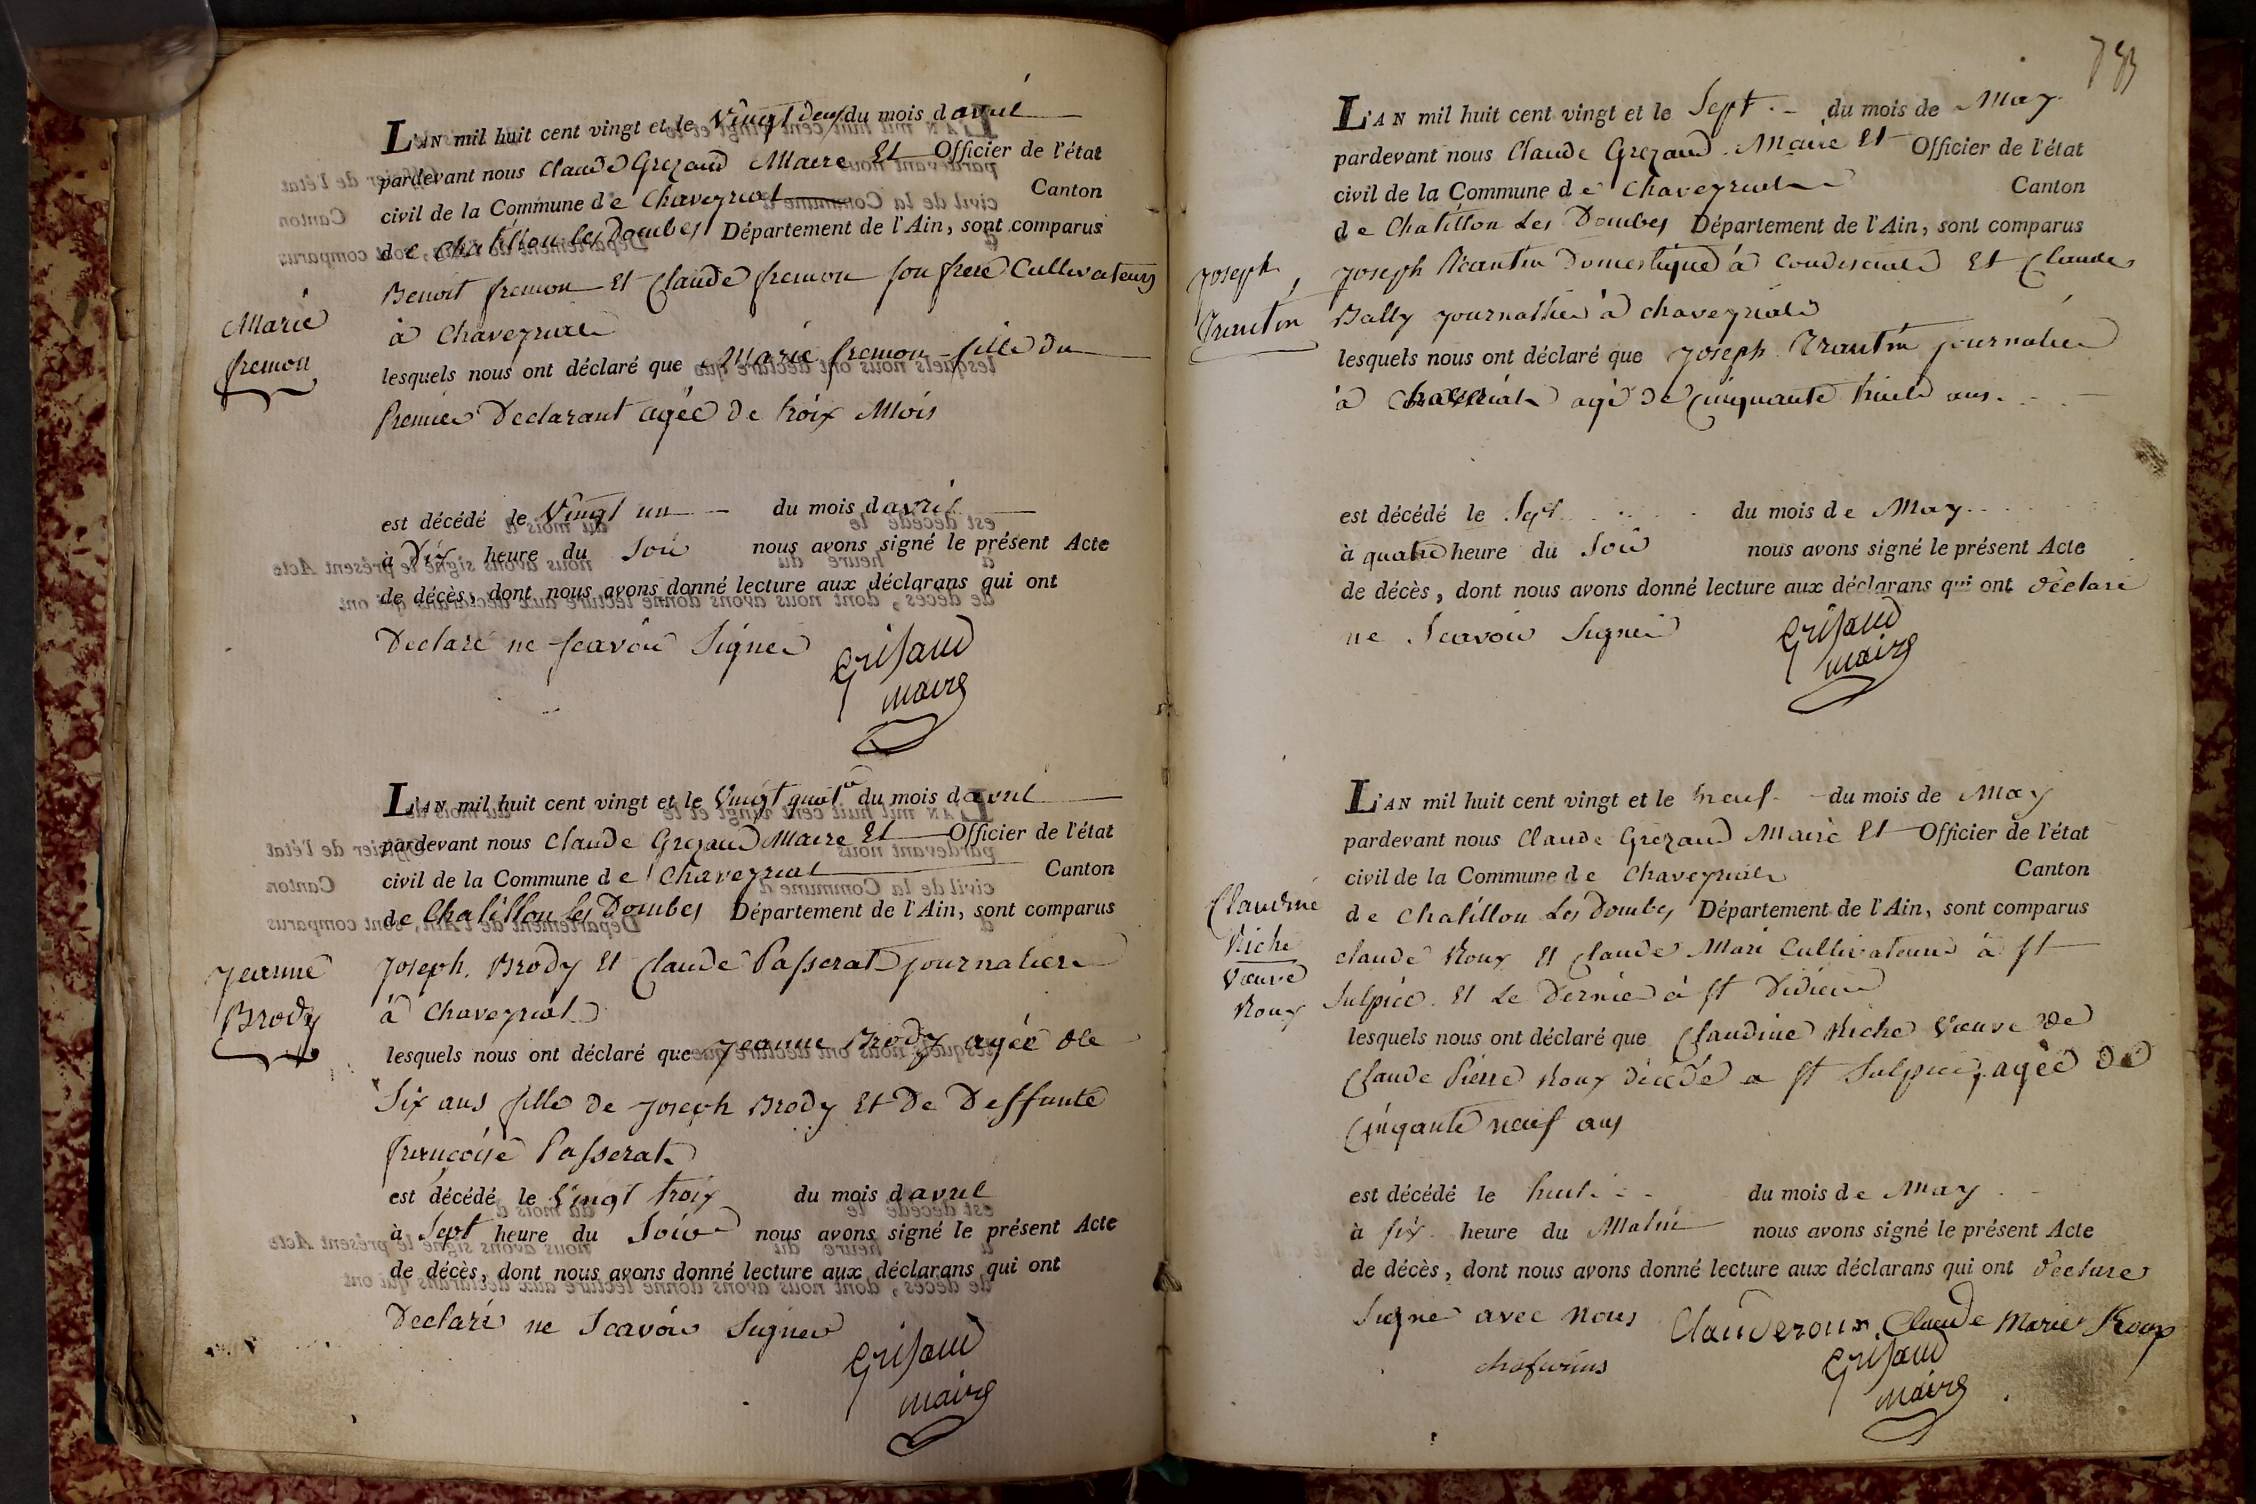 L'AN mil huit cent vingt et le Vingt deux du mois d avril
pardevant nous Claude Grezaud Maire Et Officier de l'état
civil de la Commune de Chaveyriat Canton
de Chatillon les Dombes Département de l'Ain, sont comparus
Benoit fremon Et Claude fremon son frere Cultivateurs
à Chaveyriat
lesquels nous ont déclaré que Marie fremon fille du
Premier Declarant agée de troix Mois
Marie
fremon
est décédé le Vingt un du mois d avril
à Dix heure du Soir nous avons signé le présent Acte
de décès, dont nous avons donné lecture aux déclarans qui ont
Declaré ne scavoir Signer
Grisaud
maire
L'AN mil huit cent vingt et le Vingt quatre du mois d avril
pardevant nous Claude Grezaud Maire Et Officier de l'état
civil de la Commune de Chaveyriat Canton
de Chatillon les Dombes Département de l'Ain, sont comparus
Joseph Brody Et Claude Passerat journalier
à Chaveyriat
Jeanne
Brody
lesquels nous ont déclaré que Jeanne Brody agée de
Six ans fille de Joseph Brody Et De Deffunte
françoise Passerat
est décédé le Vingt troix du mois d avril
à Sept heure du Soir nous avons signé le présent Acte
de décès, dont nous avons donné lecture aux déclarans qui ont
Declaré ne Scavoir Signer
Grisaud
maire
L'AN mil huit cent vingt et le Sept du mois de May
pardevant nous Claude Grezaud Maire Et Officier de l'état
civil de la Commune de Chaveyriat Canton
de Chatillon Les Dombes Département de l'Ain, sont comparus
Joseph Domestique à Condeissiat Et Claude
Bally journallier à chaveyriat
Joseph
lesquels nous ont déclaré que Joseph journalier
à agé de Cinquante huit ans
est décédé le Sept du mois de May
à quatre heure du Soir nous avons signé le présent Acte
de décès, dont nous avons donné lecture aux déclarans qui ont déclaré
ne Scavoir Signer
Grisaud
maire
L'AN mil huit cent vingt et le neuf du mois de May
pardevant nous Claude Grezaud Maire Et Officier de l'état
civil de la Commune de Chaveyriat Canton
de Chatillon Les Dombes Département de l'Ain, sont comparus
Claude Roux Et Claude Mari Cultivateur à St
Sulpice Et Le Dernier à St Didier
Claudine
Riche
Vœuve
Roux
lesquels nous ont déclaré que Claudine Riche Vœuve De
Claude Pierre Roux décédé a St Sulpice, agée De
Cinqante neuf ans
est décédé le huit du mois de May
à six heure du Matin nous avons signé le présent Acte
de décès, dont nous avons donné lecture aux déclarans qui ont declare
Signe avec nous Clauderoux Claude Marie Roux
Grisaud
maire